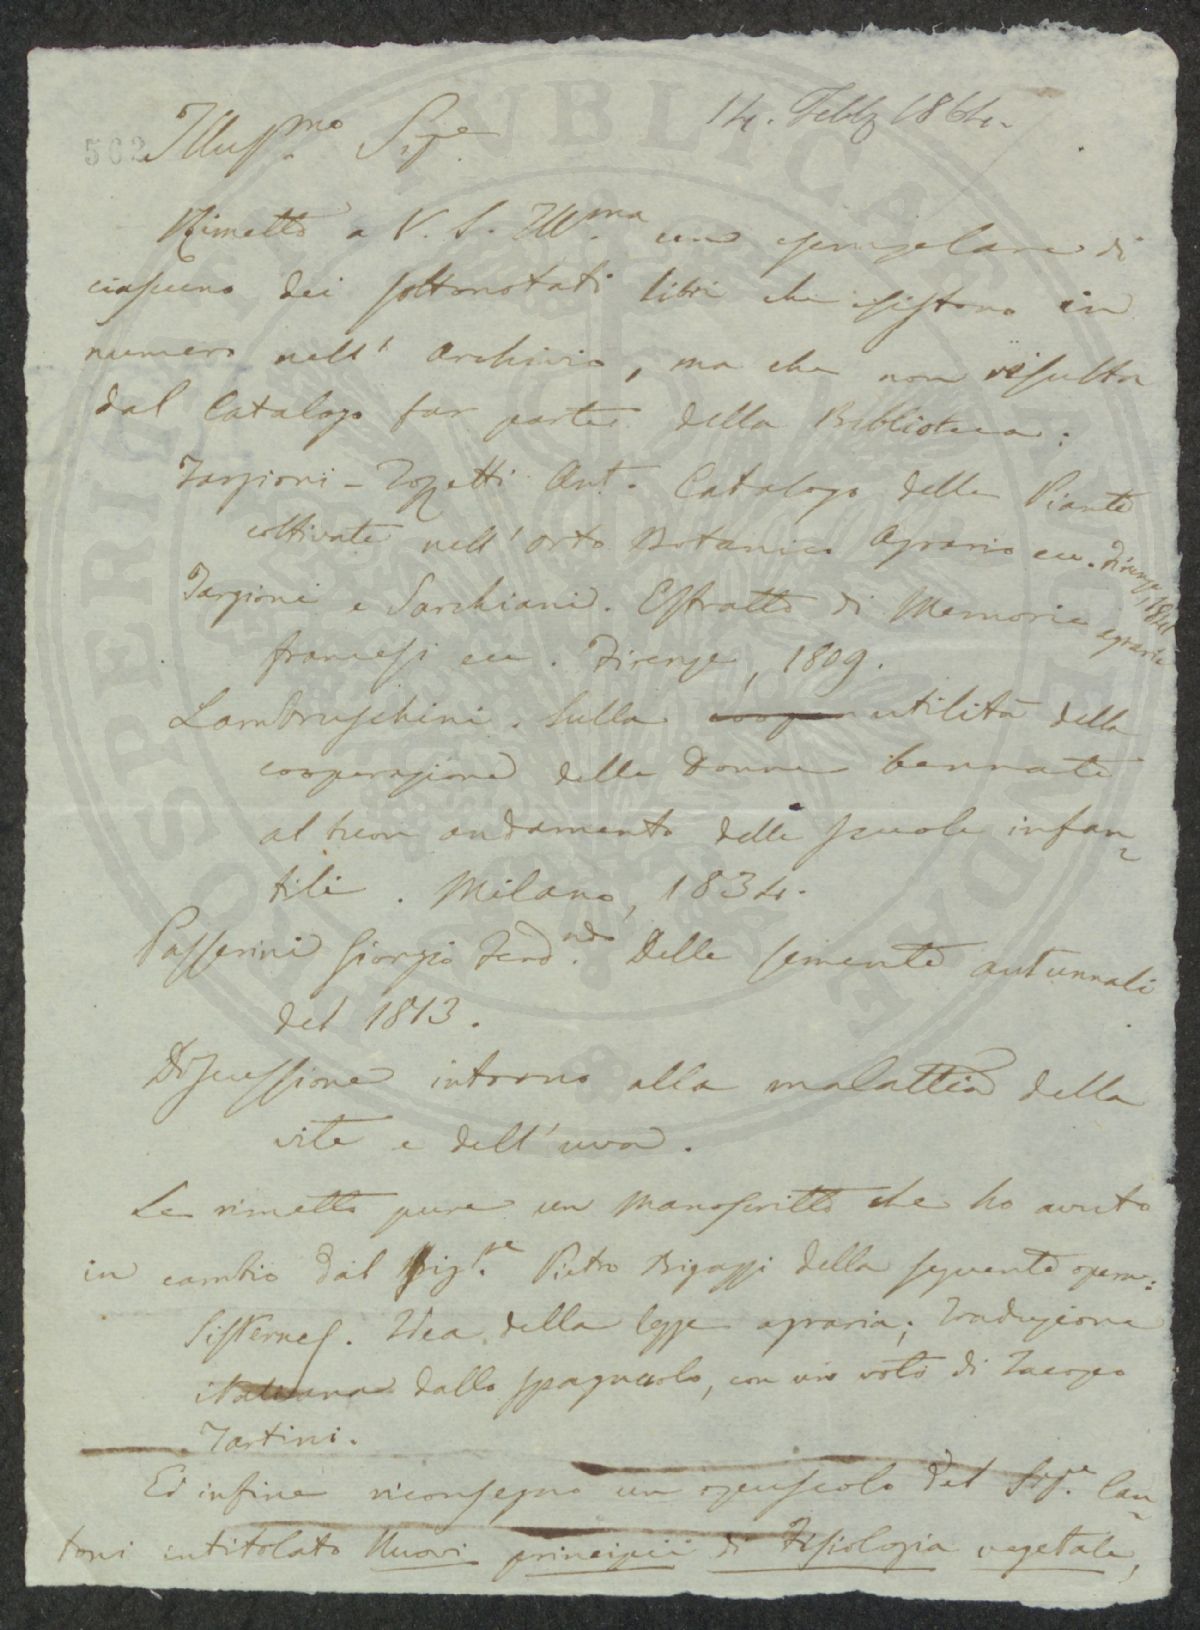 14. Febb 1864.
502
Illus.mo Sig.e
Rimetto a V. S. Ill.ma un esemplare di
ciascuno dei sottonotati libri che esistono in
numero nell' Archivio, ma che non risulta
dal Catalogo far parte della Biblioteca:
Targioni-Tozzetti Ant. Catalogo delle Piante
coltivate nell' Orto Botanico Agrario ecc. Firenze, 1841
Targioni e Sarchiani. Estratto di Memorie agrarie
francesi ecc. Firenze, 1809.
Lambruschini. Sulla utilità della
cooperazione delle Donne bennate
al buon andamento delle scuole infan-
tili. Milano, 1834.
Passerini Giorgio Ferd.ndo Delle semente autunnali
del 1813.
Discussione intorno alla malattia della
vite e dell' uva.
Le rimetto pure un manoscritto che ho avuto
in cambio dal Sig.re Pietro Bigazzi della seguente opera:
Sisternes. Idea della legge agraria; traduzione
italiana dallo spagnuolo, con un voto di Jacopo
Tartini.
Ed infine riconsegno un opuscolo del Sig.e Can-
toni intitolato Nuovi principii di Fisiologia vegetale,